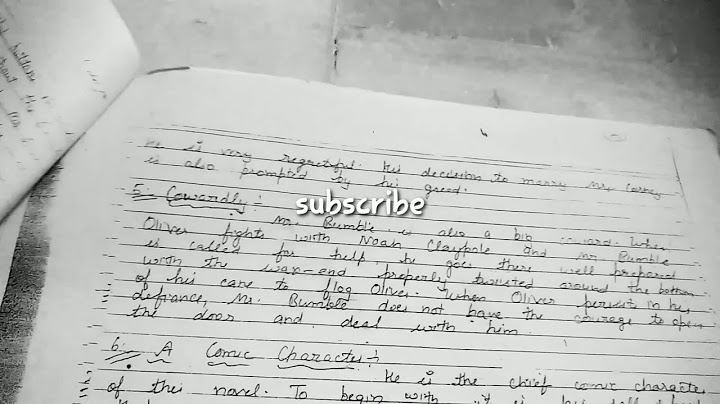 He is very regretful. His decision to marry Mrs. Corney
is also prompted by his greed.
5. Cowardly :
subscribe
Mr. Bumble is also a big coward. When
Oliver fights with Noah Claypole and Mr. Bumble
is called for help, he goes there well prepared
with the wax-end properly twisted around the bottom
of his cane to flog Oliver. When Oliver persists in his
defiance, Mr. Bumble does not have the courage to open
the door and deal with him
6. A Comic Character :
He is the chief comic character
of this novel. To begin with, it is his